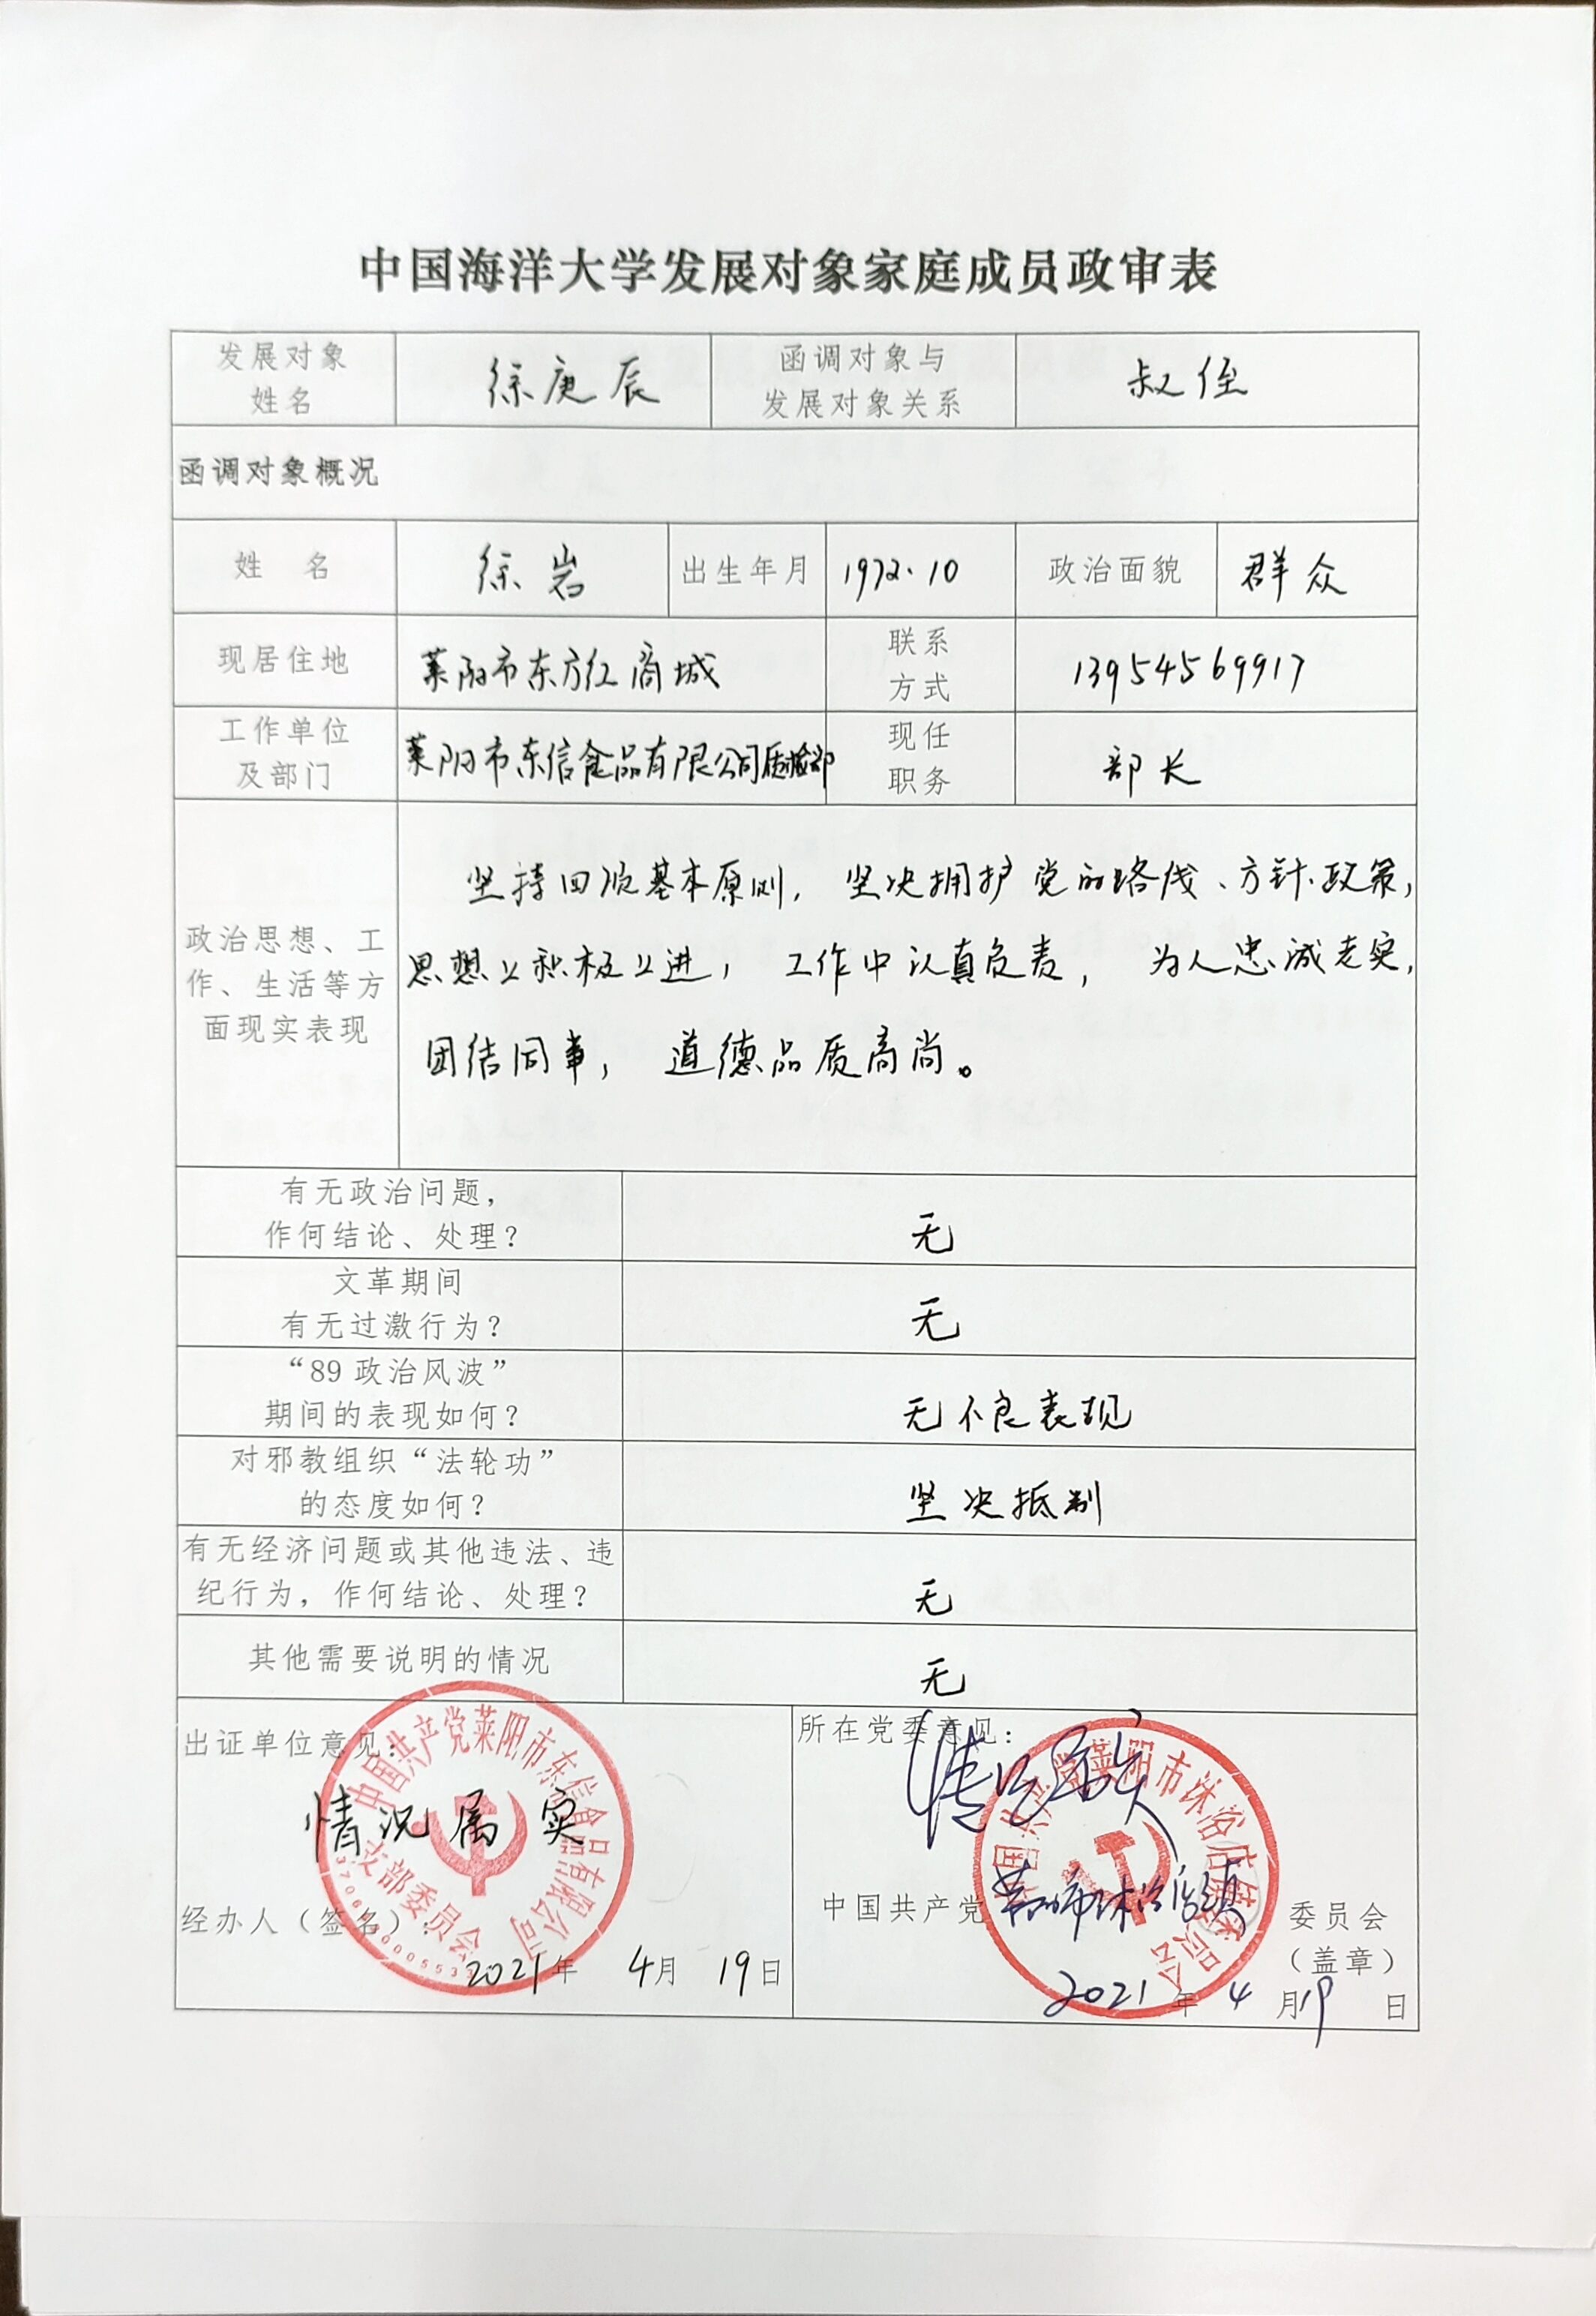 中国海洋大学发展对象家庭成员政审表
发展对象
姓名
徐庚辰
函调对象与
发展对象关系
叔侄
函调对象概况
姓 名
徐岩
出生年月
1972.10
政治面貌
群众
现居住地
莱阳市东方红商城
联系
方式
13954569917
工作单位
及部门
莱阳市东信食品有限公司质检部
现任
职务
部长
政治思想、工
作、生活等方
面现实表现
坚持四项基本原则，坚决拥护党的路线、方针、政策，
思想上积极上进，工作中认真负责，为人忠诚老实，
团结同事，道德品质高尚。
有无政治问题，
作何结论、处理？
无
文革期间
有无过激行为？
无
“89政治风波”
期间的表现如何？
无不良表现
对邪教组织“法轮功”
的态度如何？
坚决抵制
有无经济问题或其他违法、违
纪行为，作何结论、处理？
无
其他需要说明的情况
无
出证单位意见：
情况属实
中国共产党莱阳市东信食品有限公司
支部委员会
经办人（签名）：
2021年 4月 19日
所在党委意见：
情况属实
中国共产党莱阳市沐浴店镇委员会
中国共产党 莱阳市沐浴店镇 委员会
（盖章）
2021年 4月19日